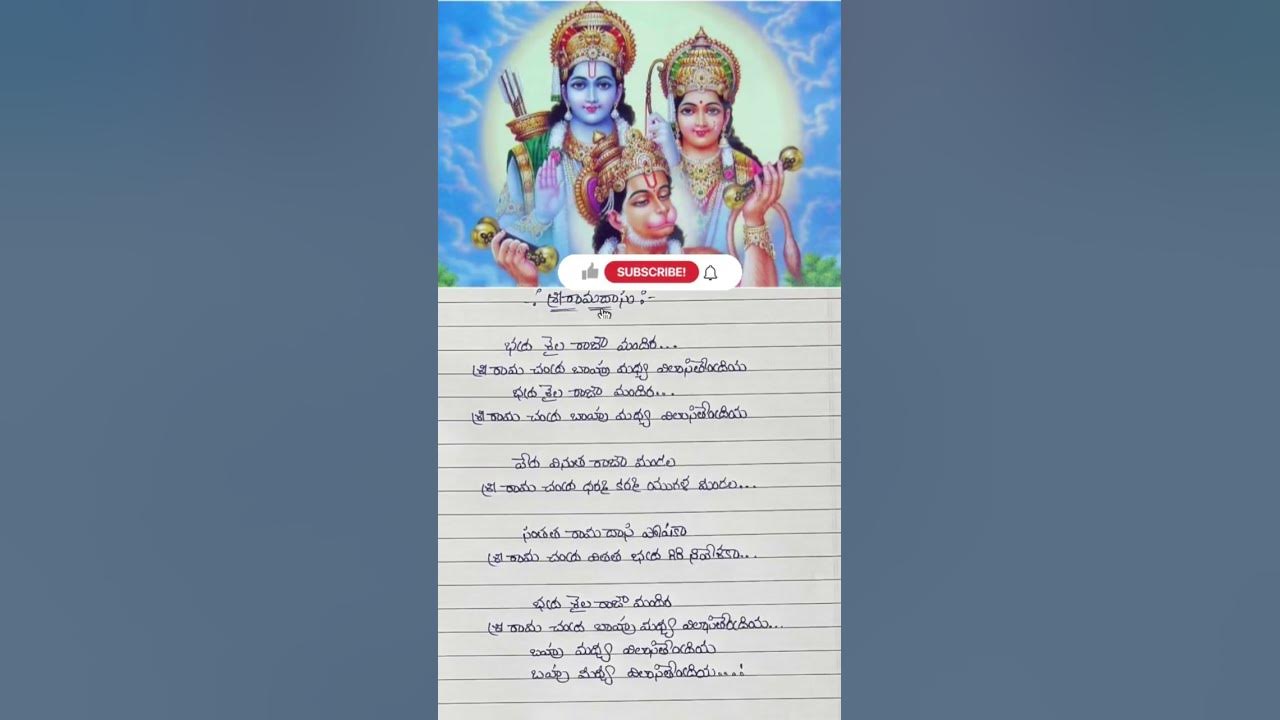 SUBSCRIBE!
-: శ్రీ రామదాసు :-
భద్ర శైల రాజా మందిర...
శ్రీ రామ చంద్ర బాహు మధ్య విలాసితేంద్రియ
భద్ర శైల రాజా మందిర...
శ్రీ రామ చంద్ర బాహు మధ్య విలాసితేంద్రియ
వేద వినుత రాజా మండల
శ్రీ రామ చంద్ర ధర్మ కర్మ యుగళ మండల...
సంతత రామ దాస పోషకా
శ్రీ రామ చంద్ర వితత భద్ర గిరి నివేశకా...
భద్ర శైల రాజా మందిర
శ్రీ రామ చంద్ర బాహు మధ్య విలాసితేంద్రియ...
బాహు మధ్య విలాసితేంద్రియ
బాహు మధ్య విలాసితేంద్రియ....!